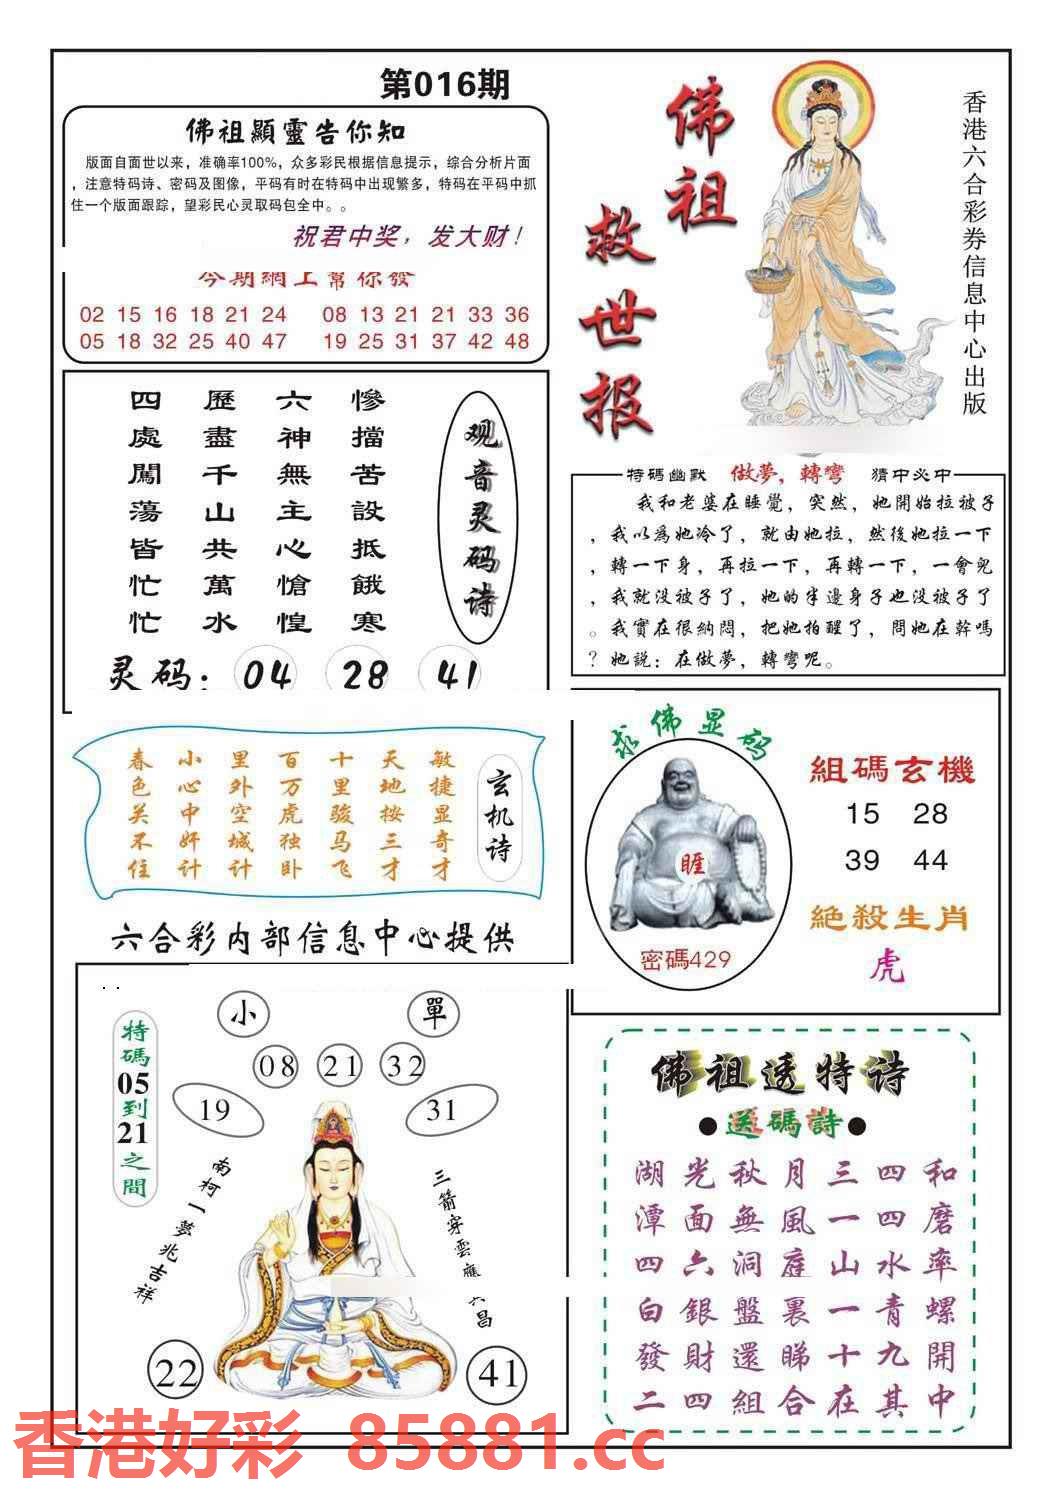 第016期
佛祖顯靈告你知
版面自面世以来，准确率100%，众多彩民根据信息提示，综合分析片面
，注意特码诗、密码及图像，平码有时在特码中出现繁多，特码在平码中抓
住一个版面跟踪，望彩民心灵取码包全中。。
祝君中奖，发大财！
今期網上幫你發
02 15 16 18 21 24 08 13 21 21 33 36
05 18 32 25 40 47 19 25 31 37 42 48
佛祖
救世报
香港六合彩券信息中心出版
观音灵码诗
慘擋苦設抵餓寒
六神無主心愴惶
歷盡千山共萬水
四處闖蕩皆忙忙
灵码：04 28 41
特碼幽默 做夢，轉彎 猜中必中
我和老婆在睡覺，突然，她開始拉被子
，我以爲她冷了，就由她拉，然後她拉一下
，轉一下身，再拉一下，再轉一下，一會兒
，我就没被子了，她的半邊身子也没被子了
。我實在很納悶，把她拍醒了，問她在幹嗎
？她説：在做夢，轉彎呢。
玄机诗
敏捷显奇才
天地按三才
十里骏马飞
百万虎独卧
里外空城计
小心中奸计
春色关不住
六合彩内部信息中心提供
求佛显码
睚
密碼429
組碼玄機
15 28
39 44
絕殺生肖
虎
特碼05到21之間
小 單
08 21 32
19 31
南柯一夢兆吉祥
三箭穿雲應六昌
22 41
佛祖透特诗
●送碼詩●
湖光秋月三四和
潭面無風一四磨
四六洞庭山水率
白銀盤裏一青螺
發財還睇十九開
二四組合在其中
香港好彩 85881.cc